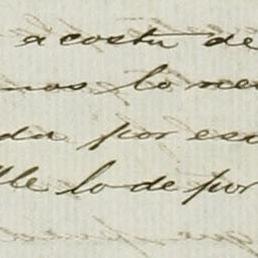 acosta de
nos lo
da por eso
lle lo de por